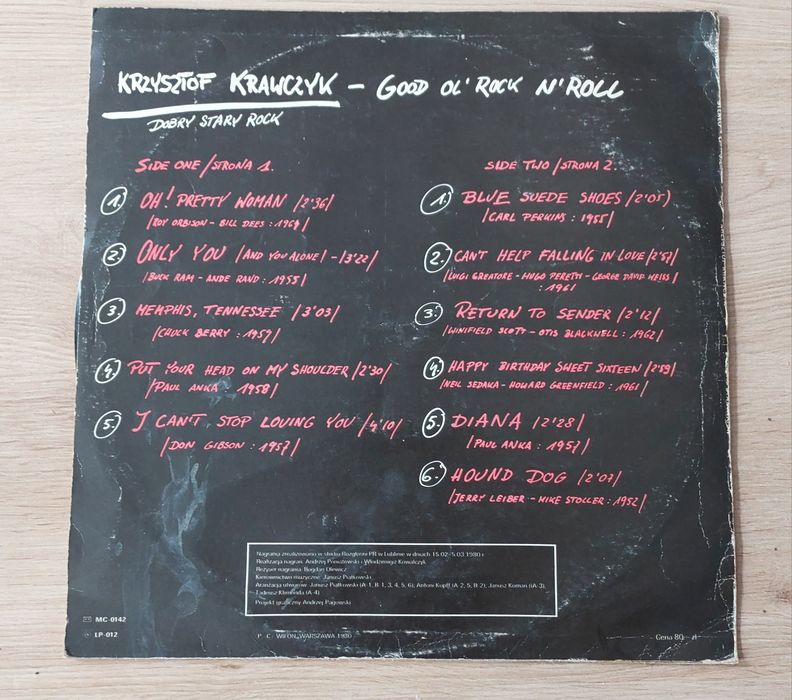 KRZYSZTOF KRAWCZYK – GOOD OL' ROCK N' ROLL
DOBRY STARY ROCK
SIDE ONE /STRONA 1.
1. OH! PRETTY WOMAN /2'36/
/ROY ORBISON - BILL DEES : 1964/
2. ONLY YOU /AND YOU ALONE/ - /3'22/
/BUCK RAM - ANDE RAND : 1955/
3. MEMPHIS, TENNESSEE /3'03/
/CHUCK BERRY : 1959/
4. PUT YOUR HEAD ON MY SHOULDER /2'30/
/PAUL ANKA - 1958/
5. I CAN'T STOP LOVING YOU /4'10/
/DON GIBSON : 1957/
SIDE TWO /STRONA 2.
1. BLUE SUEDE SHOES /2'05/
/CARL PERKINS : 1955/
2. CAN'T HELP FALLING IN LOVE /2'57/
/LUIGI CREATORE - HUGO PERETTI - GEORGE DAVID WEISS/
: 1961
3. RETURN TO SENDER /2'12/
/WINIFIELD SCOTT - OTIS BLACKWELL : 1962/
4. HAPPY BIRTHDAY SWEET SIXTEEN /2'59/
/NEIL SEDAKA - HOWARD GREENFIELD : 1961/
5. DIANA /2'28/
/PAUL ANKA : 1957/
6. HOUND DOG /2'07/
/JERRY LEIBER - MIKE STOLLER : 1952/
Nagrania zrealizowano w studiu Rozgłośni PR w Lublinie w dniach 15.02-5.03.1980 r.
Realizacja nagrań: Andrzej Poniatowski i Włodzimierz Kowalczyk
Reżyser nagrania: Bogdan Olewicz
Kierownictwo muzyczne: Janusz Piątkowski
Aranżacja utworów: Janusz Piątkowski (A-1, B-1, 3, 4, 5, 6), Antoni Kopff (A-2, 5, B-2), Janusz Koman (A-3),
Tadeusz Klimonda (A-4)
Projekt graficzny Andrzej Pągowski
MC-0142
LP-012
P. C. WIFON, WARSZAWA 1980
Cena 80,- zł